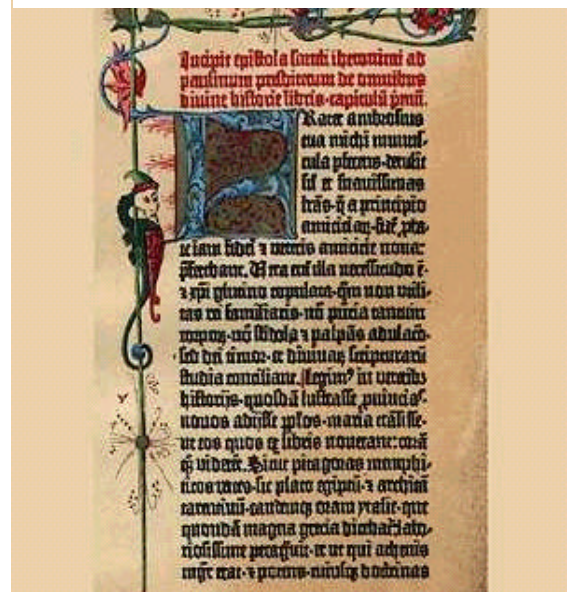 Incipit epistola sancti iheronimi ad
paulinum presbiterum de omnibus
divine historie libris·capitulū p̄mū.
Frater ambrosius
tua michi munus-
cula ꝑferens·detulit
sil' et suavissimas
lr̄as·q̄ a principio
amiciciaꝝ·fidē ꝓba-
te iam fidei ⁊ veteris amicicie nova:
p̄ferebant. Vera eni illa necessitudo ē·
⁊ xp̄i glutino copulata·qm̄ non utili-
tas rei familiaris·nō p̄ncia tantum
corpoꝝ·nō sb̄dola ⁊ palpās adulacō·
sed dei timor·et divinaꝝ scripturarū
studia conciliant. Legimꝰ in veteribꝫ
historijs·quosdā lustrasse ꝓvincias·
novos adijsse ꝓplos·maria trāsisse·
ut eos quos ex libris noverant: corā
qꝫ viderēt. Sicut pitagoras memphi-
ticos vates·sic plato egiptū·⁊ archita
tarentinū·eandemqꝫ oram ytalie·que
quondā magna grecia dicebat':labo-
riosissime peragravit·et ut qui athenis
mgr̄ erat·⁊ potens·cuiusqꝫ doctrinas